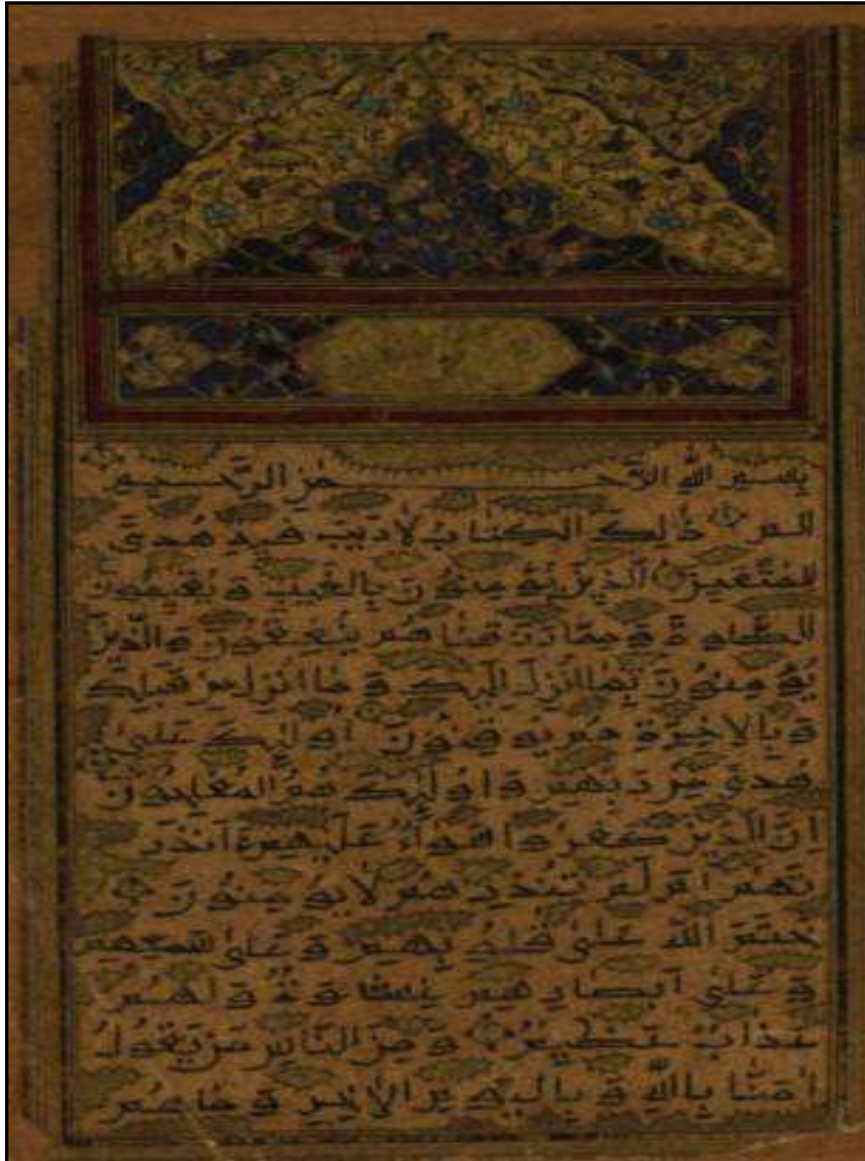 بِسْمِ اللهِ الرَّحْمٰنِ الرَّحِيمِ
الم ذٰلِكَ الْكِتٰابُ لاٰرَيْبَ فِيهِ هُدىً
لِلْمُتَّقِينَ اَلَّذِينَ يُؤْمِنُونَ بِالْغَيْبِ وَ يُقِيمُونَ
الصَّلوٰةَ وَ مِمّٰا رَزَقْنٰاهُمْ يُنْفِقُونَ وَ الَّذِينَ
يُؤْمِنُونَ بِمٰا اُنْزِلَ اِلَيْكَ وَ مٰا اُنْزِلَ مِنْ قَبْلِكَ
وَ بِالْاٰخِرَةِ هُمْ يُوقِنُونَ اُولٰئِكَ عَلىٰ
هُدىً مِنْ رَبِّهِمْ وَ اُولٰئِكَ هُمُ الْمُفْلِحُونَ
اِنَّ الَّذِينَ كَفَرُوا سَوٰاءٌ عَلَيْهِمْ ءَاَنْذَرْ
تَهُمْ اَمْ لَمْ تُنْذِرْهُمْ لاٰ يُؤْمِنُونَ
خَتَمَ اللهُ عَلىٰ قُلُوبِهِمْ وَ عَلىٰ سَمْعِهِمْ
وَ عَلىٰ اَبْصٰارِهِمْ غِشٰاوَةٌ وَ لَهُمْ
عَذٰابٌ عَظِيمٌ وَ مِنَ النّٰاسِ مَنْ يَقُولُ
اٰمَنّٰا بِاللهِ وَ بِالْيَوْمِ الْاٰخِرِ وَ مٰا هُمْ